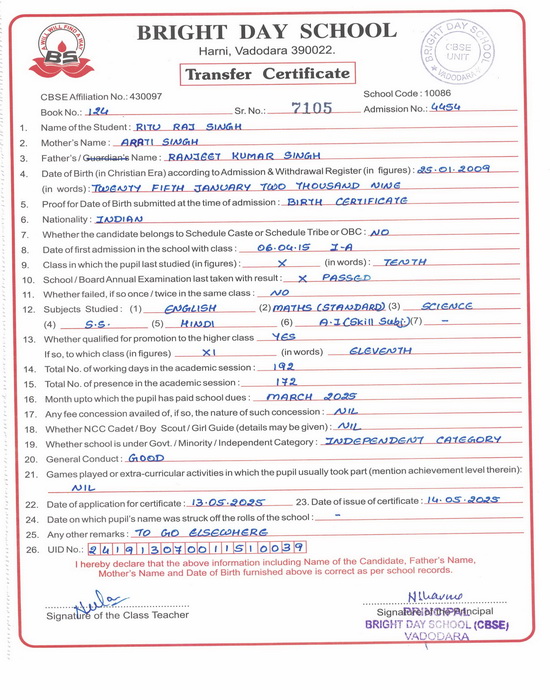 A WILL WILL FIND A WAY
BS
BRIGHT DAY SCHOOL
Harni, Vadodara 390022.
Transfer Certificate
BRIGHT DAY SCHOOL
CBSE
UNIT
VADODARA
CBSE Affiliation No.: 430097 School Code : 10086
Book No.: 124 Sr. No.: 7105 Admission No.: 4454
1. Name of the Student : RITU RAJ SINGH
2. Mother's Name : ARATI SINGH
3. Father's / Guardian's Name : RANJEET KUMAR SINGH
4. Date of Birth (in Christian Era) according to Admission & Withdrawal Register (in figures) : 25.01.2009
(in words) : TWENTY FIFTH JANUARY TWO THOUSAND NINE
5. Proof for Date of Birth submitted at the time of admission : BIRTH CERTIFICATE
6. Nationality : INDIAN
7. Whether the candidate belongs to Schedule Caste or Schedule Tribe or OBC : NO
8. Date of first admission in the school with class : 06.04.15 I-A
9. Class in which the pupil last studied (in figures) : X (in words) : TENTH
10. School / Board Annual Examination last taken with result : X PASSED
11. Whether failed, if so once / twice in the same class : NO
12. Subjects Studied : (1) ENGLISH (2) MATHS (STANDARD) (3) SCIENCE
(4) S.S. (5) HINDI (6) A.I (Skill Subj.) (7) -
13. Whether qualified for promotion to the higher class YES
If so, to which class (in figures) XI (in words) ELEVENTH
14. Total No. of working days in the academic session : 192
15. Total No. of presence in the academic session : 172
16. Month upto which the pupil has paid school dues : MARCH 2025
17. Any fee concession availed of, if so, the nature of such concession : NIL
18. Whether NCC Cadet / Boy Scout / Girl Guide (details may be given) : NIL
19. Whether school is under Govt. / Minority / Independent Category : INDEPENDENT CATEGORY
20. General Conduct : GOOD
21. Games played or extra-curricular activities in which the pupil usually took part (mention achievement level therein) :
NIL
22. Date of application for certificate : 13.05.2025 23. Date of issue of certificate : 14.05.2025
24. Date on which pupil's name was struck off the rolls of the school : -
25. Any other remarks : TO GO ELSEWHERE
26. UID No.: 241913070011510039
I hereby declare that the above information including Name of the Candidate, Father's Name,
Mother's Name and Date of Birth furnished above is correct as per school records.
Signature of the Class Teacher Signature of the Principal
PRINCIPAL
BRIGHT DAY SCHOOL (CBSE)
VADODARA